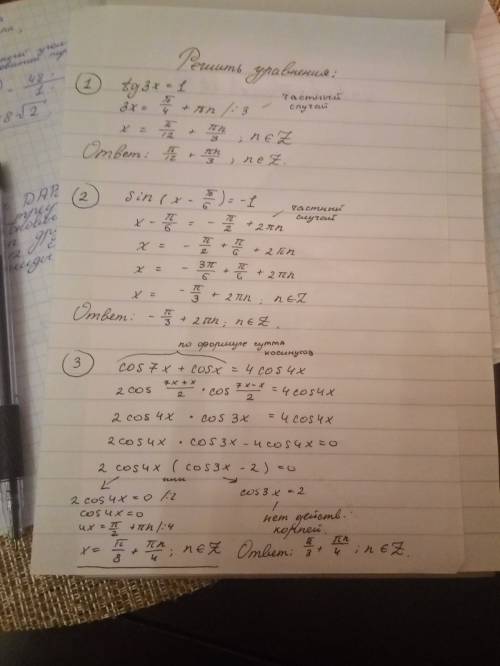 Решить уравнения:
1
tg3x = 1
3x = π/4 + πn /:3
частный
случай
x = π/12 + πn/3, n ∈ Z
Ответ: π/12 + πn/3, n ∈ Z.
2
sin(x - π/6) = -1
x - π/6 = - π/2 + 2πn
частный
случай
x = - π/2 + π/6 + 2πn
x = - 3π/6 + π/6 + 2πn
x = - π/3 + 2πn; n ∈ Z
Ответ: - π/3 + 2πn; n ∈ Z.
3
по формуле сумма
косинусов
cos7x + cosx = 4cos4x
2cos (7x+x)/2 · cos (7x-x)/2 = 4cos4x
2cos4x · cos3x = 4cos4x
2cos4x · cos3x - 4cos4x = 0
2cos4x (cos3x - 2) = 0
или
2cos4x = 0 /:2
cos3x = 2
cos4x = 0
нет действ.
4x = π/2 + πn /:4
корней.
x = π/8 + πn/4; n ∈ Z
Ответ: π/8 + πn/4; n ∈ Z.
48
1
8√2